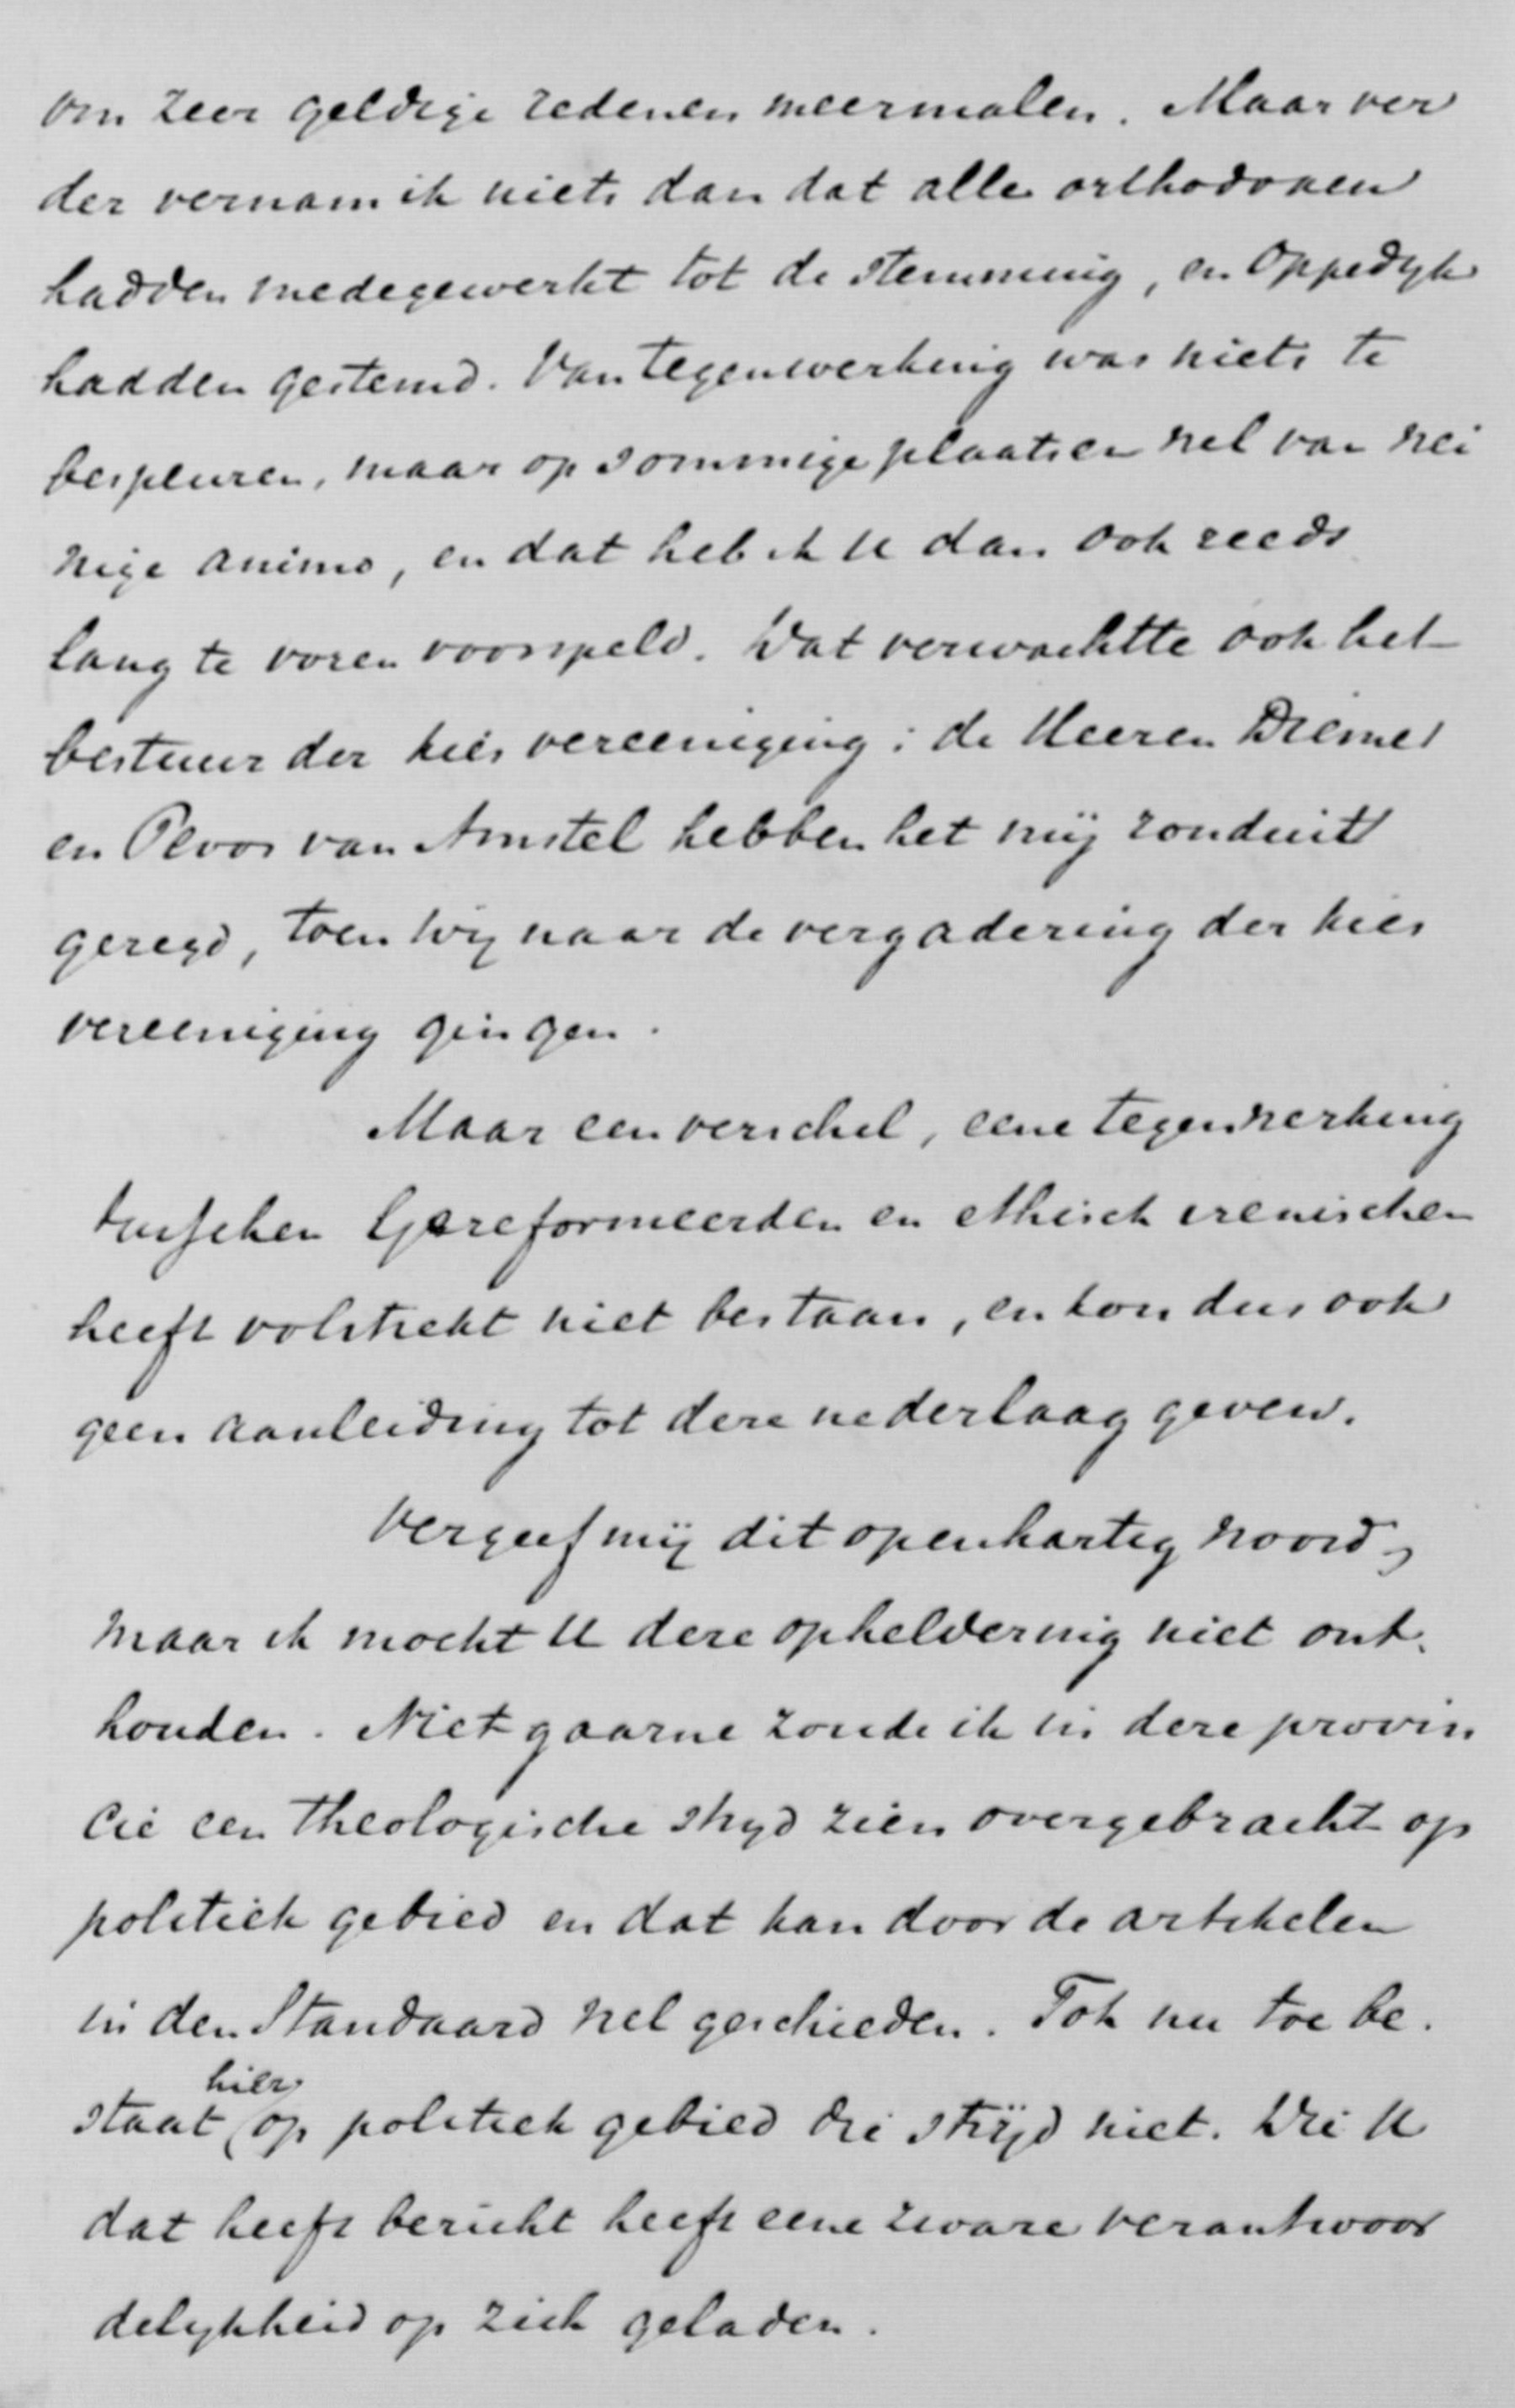 om zeer geldige redenen meermalen. Maar ver
der vernam ik niets dan dat alle orthodoxen
hadden medegewerkt tot de stemming, en Oppedyk
hadden gestemd. Van tegenwerking was niets te
bespeuren, maar op sommige plaatsen wel van wei
nige animo, en dat heb ik U dan ook reeds
lang te voren voorspeld. Dat verwachtte ook het
bestuur der kiesvereeniging; de Heeren Diemer
en van Amstel hebben het mij ronduit
gezegd, toen wij naar de vergadering der kies
vereeniging gingen.
Maar een verschil, eene tegenwerking
tusschen Gereformeerden en ethisch irenischen
heeft volstrekt niet bestaan, en kon dus ook
geen aanleiding tot deze nederlaag geven.
Vergeef mij dit openhartig woord,
maar ik mocht U deze opheldering niet ont.
houden. Niet gaarne zoude ik in deze provin
cie een theologische stryd zien overgebracht op
politiek gebied en dat kan door de artikelen
in den Standaard wel geschieden. Tot nu toe be.
staat hier op politiek gebied die strijd niet. Wie U
dat heeft bericht heeft eene zware verantwoor
delykheid op zich geladen.